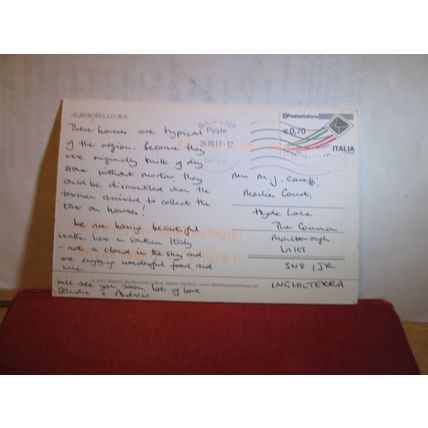 ALBEROBELLO (BA)
These houses are typical
of the region. Because they
were originally built of dry
stone without mortar they
could be dismantled when the
taxman arrived to collect the
tax on houses!
We are having beautiful
weather here in Southern Italy
- not a cloud in the sky and
are enjoying wonderful food and
wine.
Will see you soon, lots of love
& Andrew
Posteitaliane
€ 0,70
ITALIA
BARI CMP
Poste
26.09.13-17
Mrs M.J.
Merlin Court,
Hyde Lane
The Common
Marlborough
Wilts
SN8 1JR
INGHILTERRA